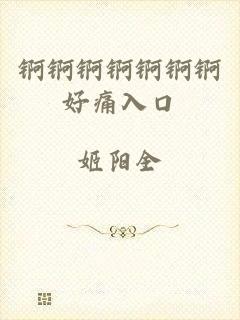 锕锕锕锕锕锕锕
好痛入口
姬阳全